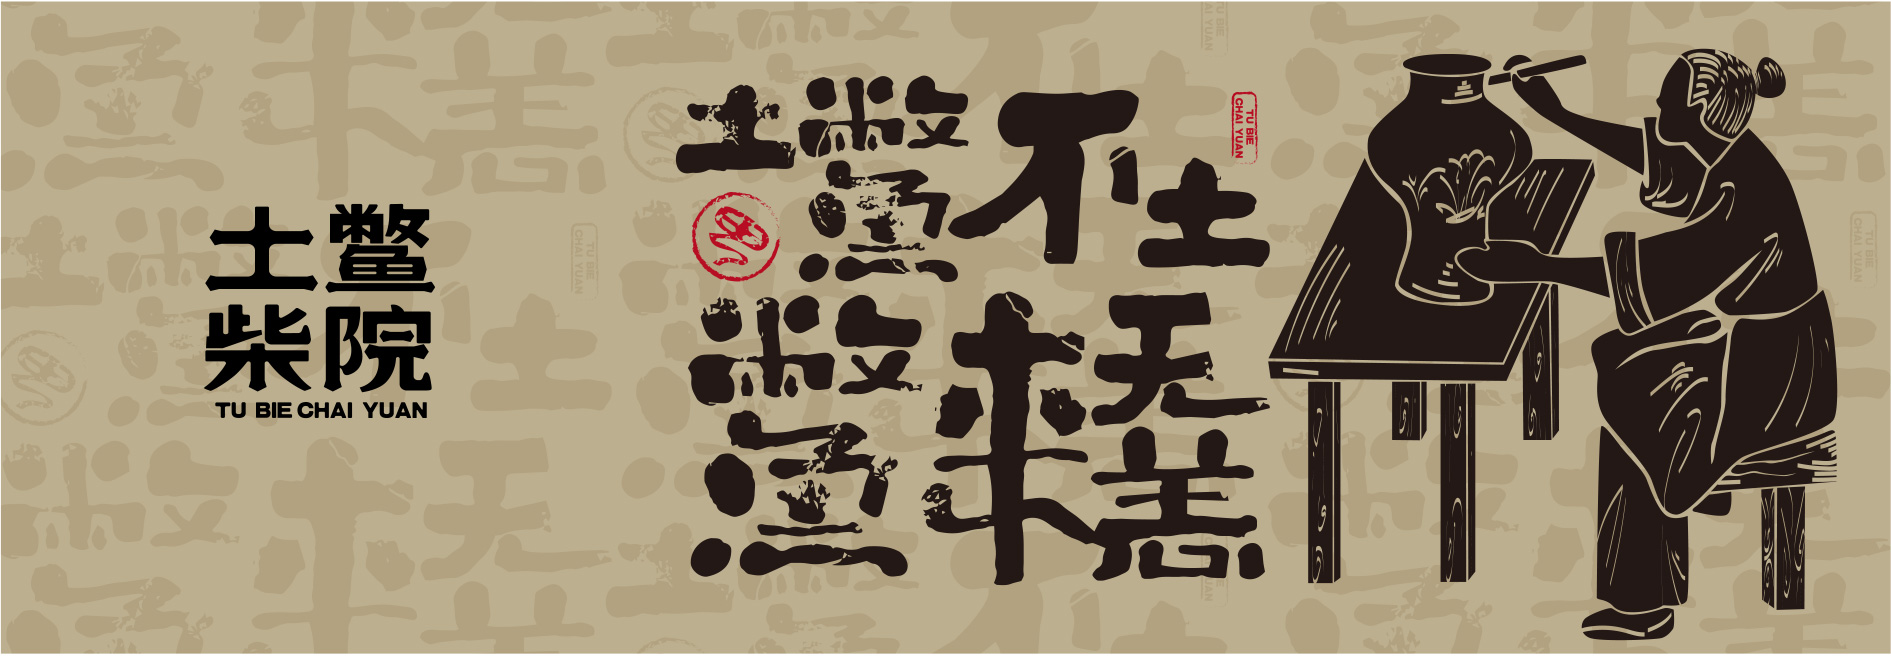 土鳖
柴院
TU BIE CHAI YUAN
土鳖不土
鳖来无恙
TU BIE
CHAI YUAN